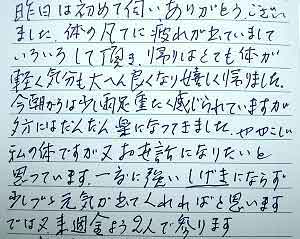 昨日は初めて伺いありがとうござい
ました. 体の凡てに疲れが出ていまして
いろいろして頂き、帰りはとても体が
軽く気分も大へん良くなり嬉しく帰りました.
今朝からは少し両足重たく感じられていますが
夕方にはだんだん楽になってきました. ややこしい
私の体ですが又お世話になりたいと
思っています. 一度に強いしげきにならず
少しづつ元気が出てくれればと思います
では又来週金よう2人で参ります